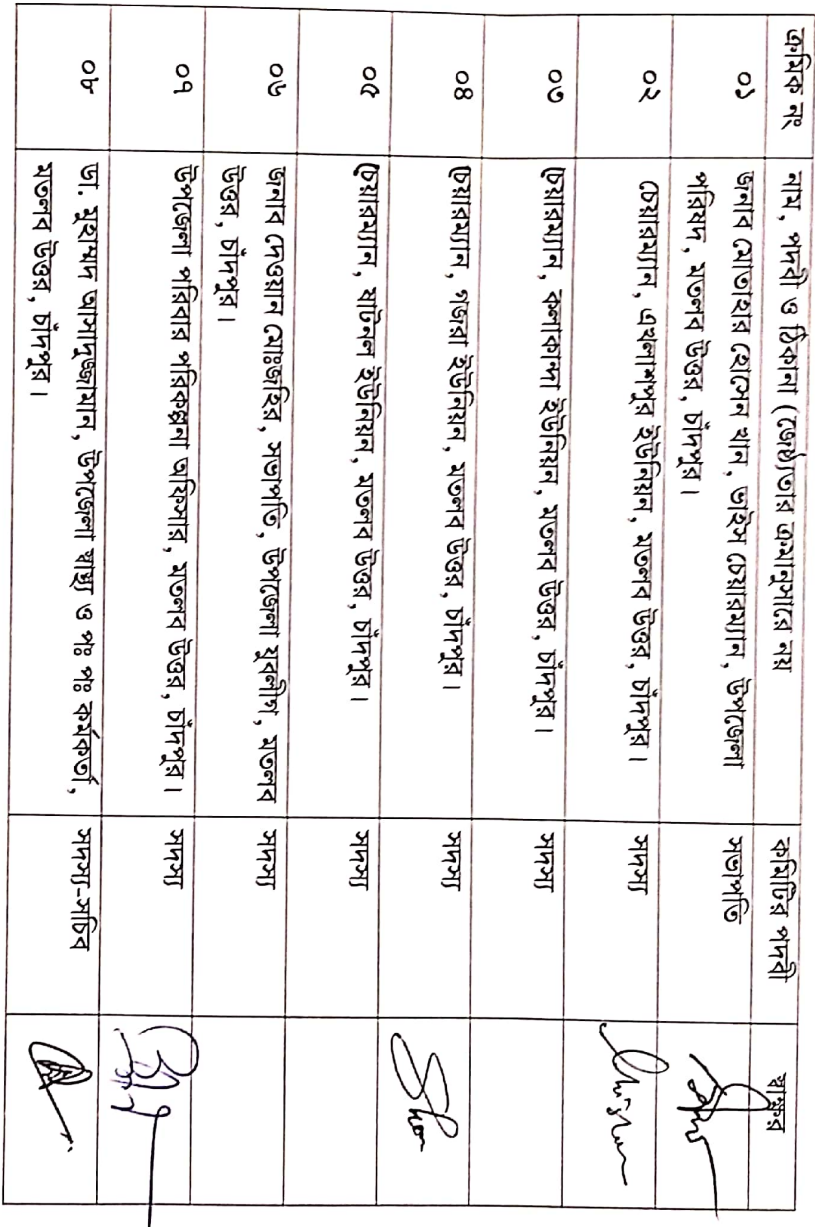 ক্রমিক নং নাম, পদবী ও ঠিকানা (জ্যেষ্ঠতার ক্রমানুসারে নয় কমিটির পদবী স্বাক্ষর
০১ জনাব মোতাহার হোসেন খান, ভাইস চেয়ারম্যান, উপজেলা সভাপতি
পরিষদ, মতলব উত্তর, চাঁদপুর।
০২ চেয়ারম্যান, এখলাশপুর ইউনিয়ন, মতলব উত্তর, চাঁদপুর। সদস্য
০৩ চেয়ারম্যান, কলাকান্দা ইউনিয়ন, মতলব উত্তর, চাঁদপুর। সদস্য
০৪ চেয়ারম্যান, গজরা ইউনিয়ন, মতলব উত্তর, চাঁদপুর। সদস্য
০৫ চেয়ারম্যান, ষাটনল ইউনিয়ন, মতলব উত্তর, চাঁদপুর। সদস্য
০৬ জনাব দেওয়ান মোঃজহির, সভাপতি, উপজেলা যুবলীগ, মতলব সদস্য
উত্তর, চাঁদপুর।
০৭ উপজেলা পরিবার পরিকল্পনা অফিসার, মতলব উত্তর, চাঁদপুর। সদস্য
০৮ ডা. মুহাম্মদ আসাদুজ্জামান, উপজেলা স্বাস্থ্য ও পঃ পঃ কর্মকর্তা, সদস্য-সচিব
মতলব উত্তর, চাঁদপুর।